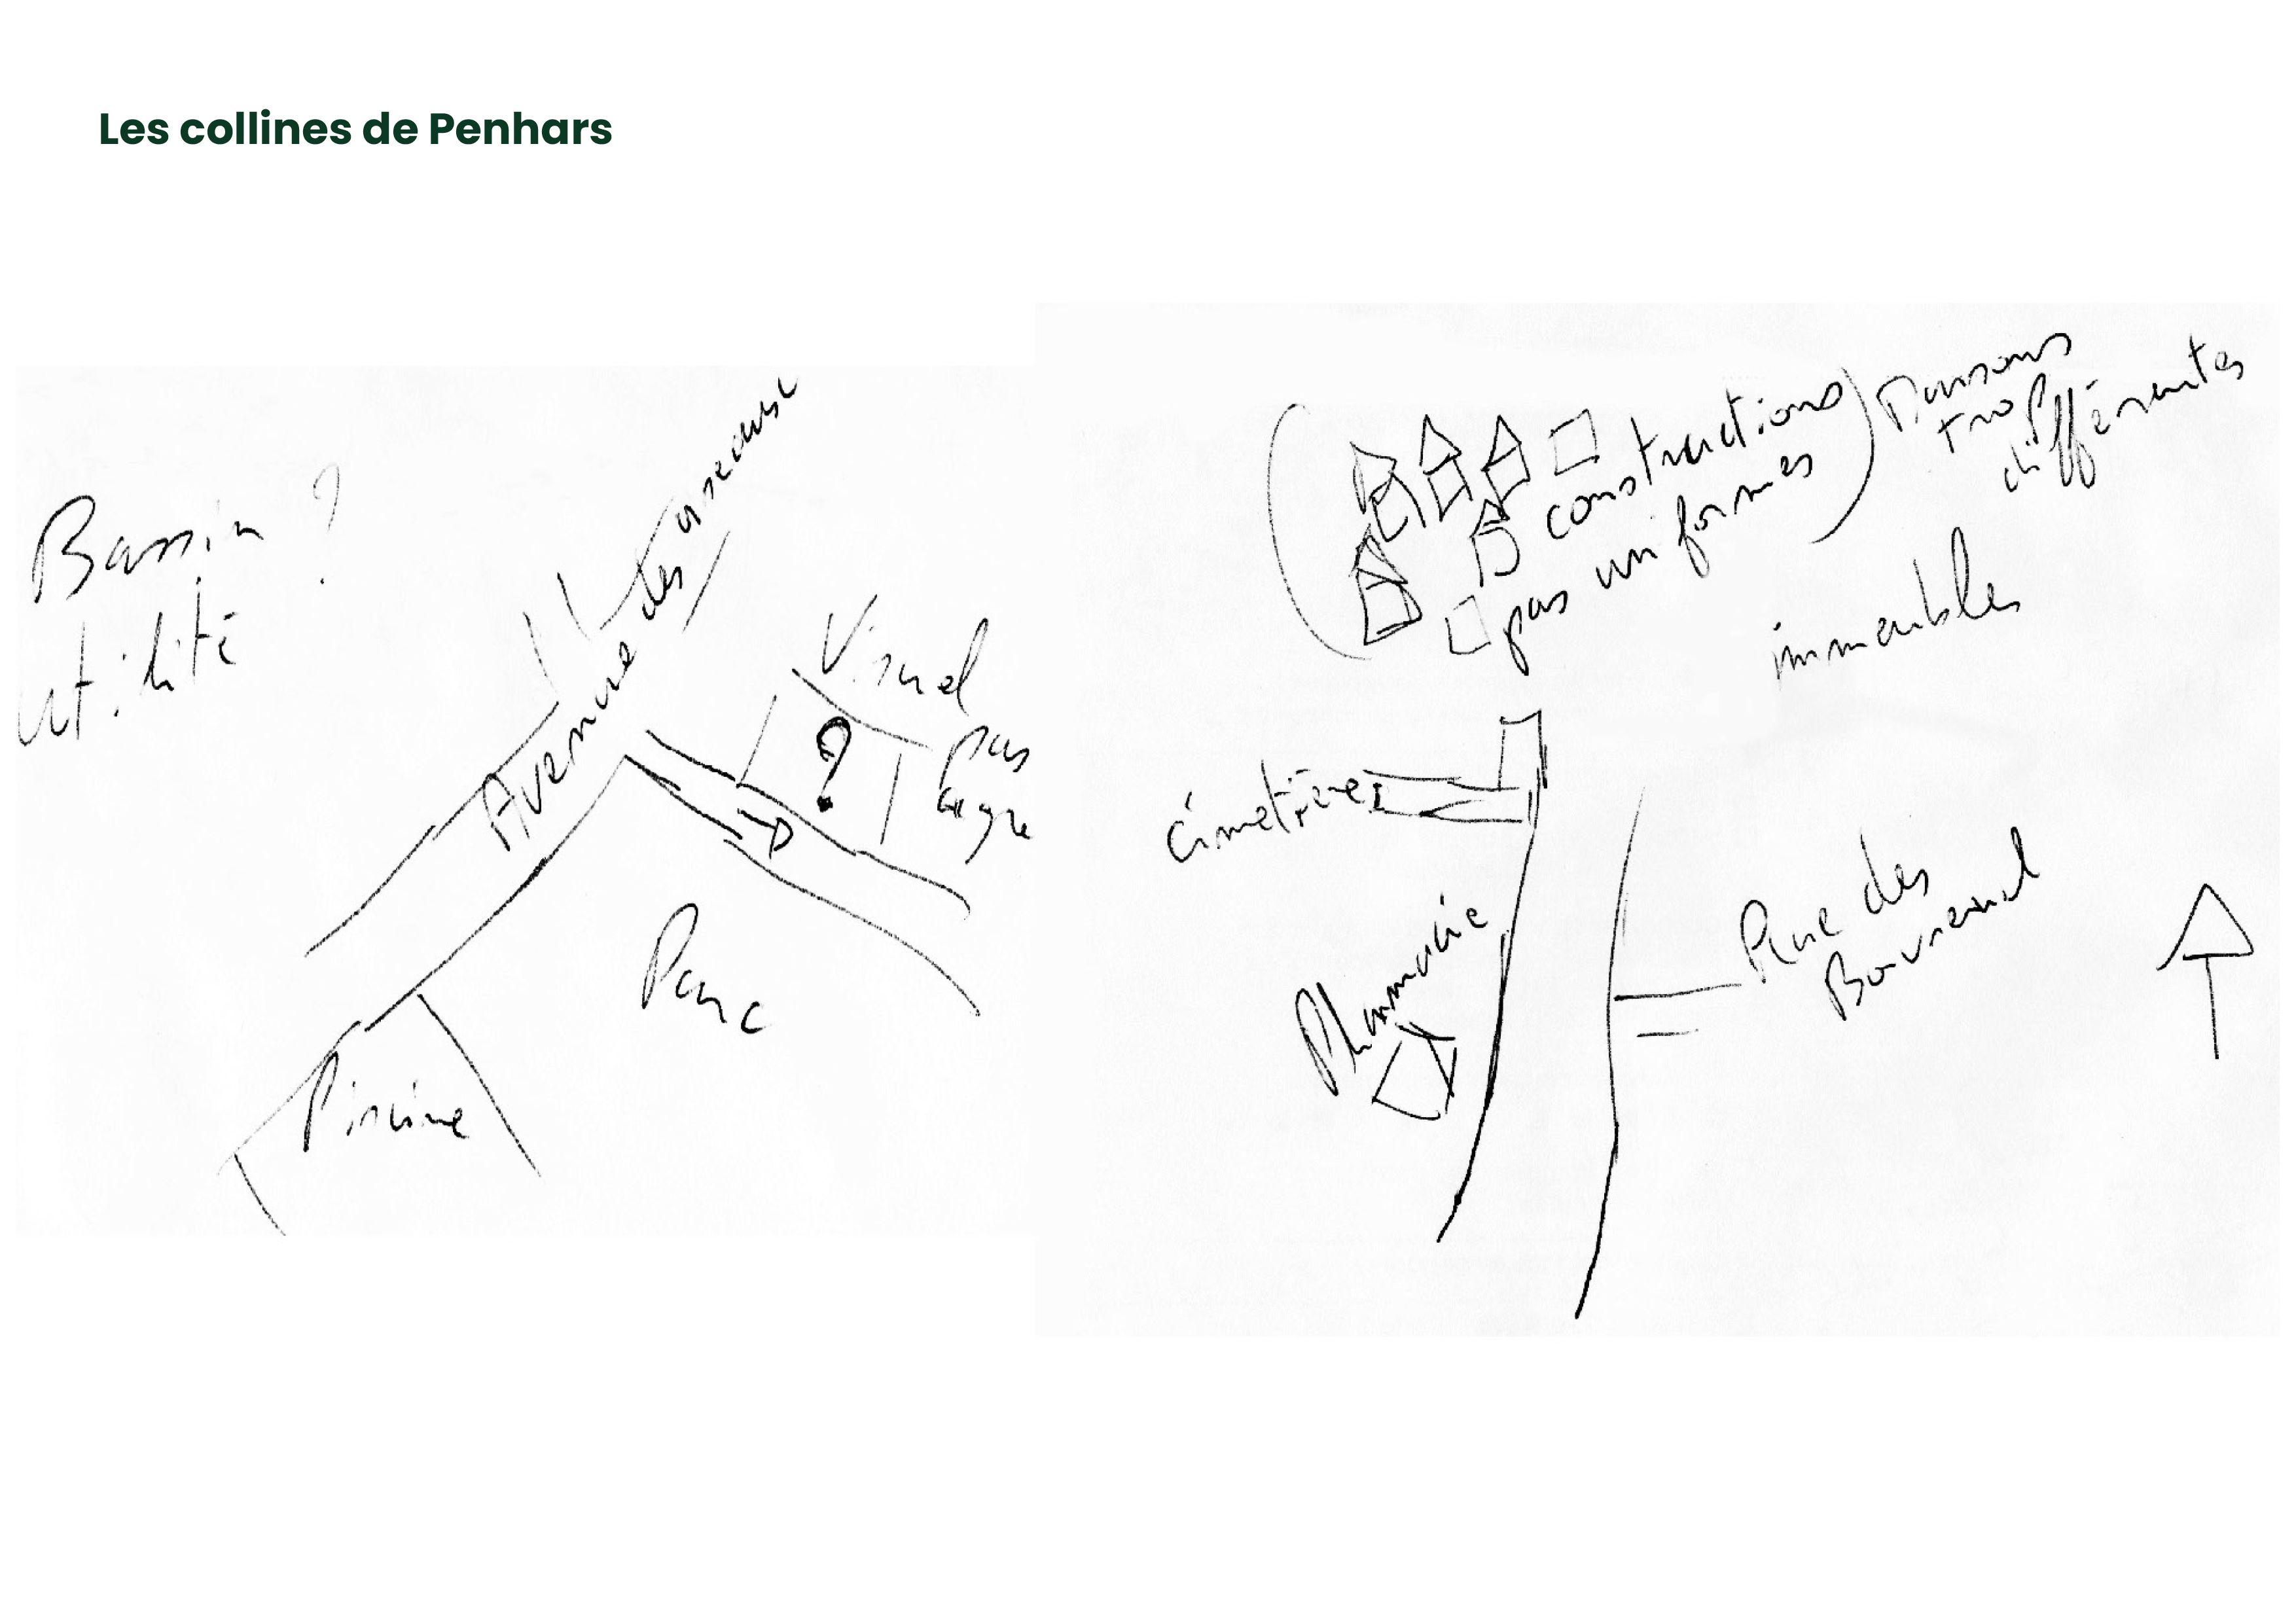 Les collines de Penhars
Bassin ?
utilité
Avenue des oiseaux
Visuel
pas
?
Parc
Piscine
constructions
pas uniformes
Maisons
trop
différentes
immeubles
cimetière
Pharmacie
Rue des